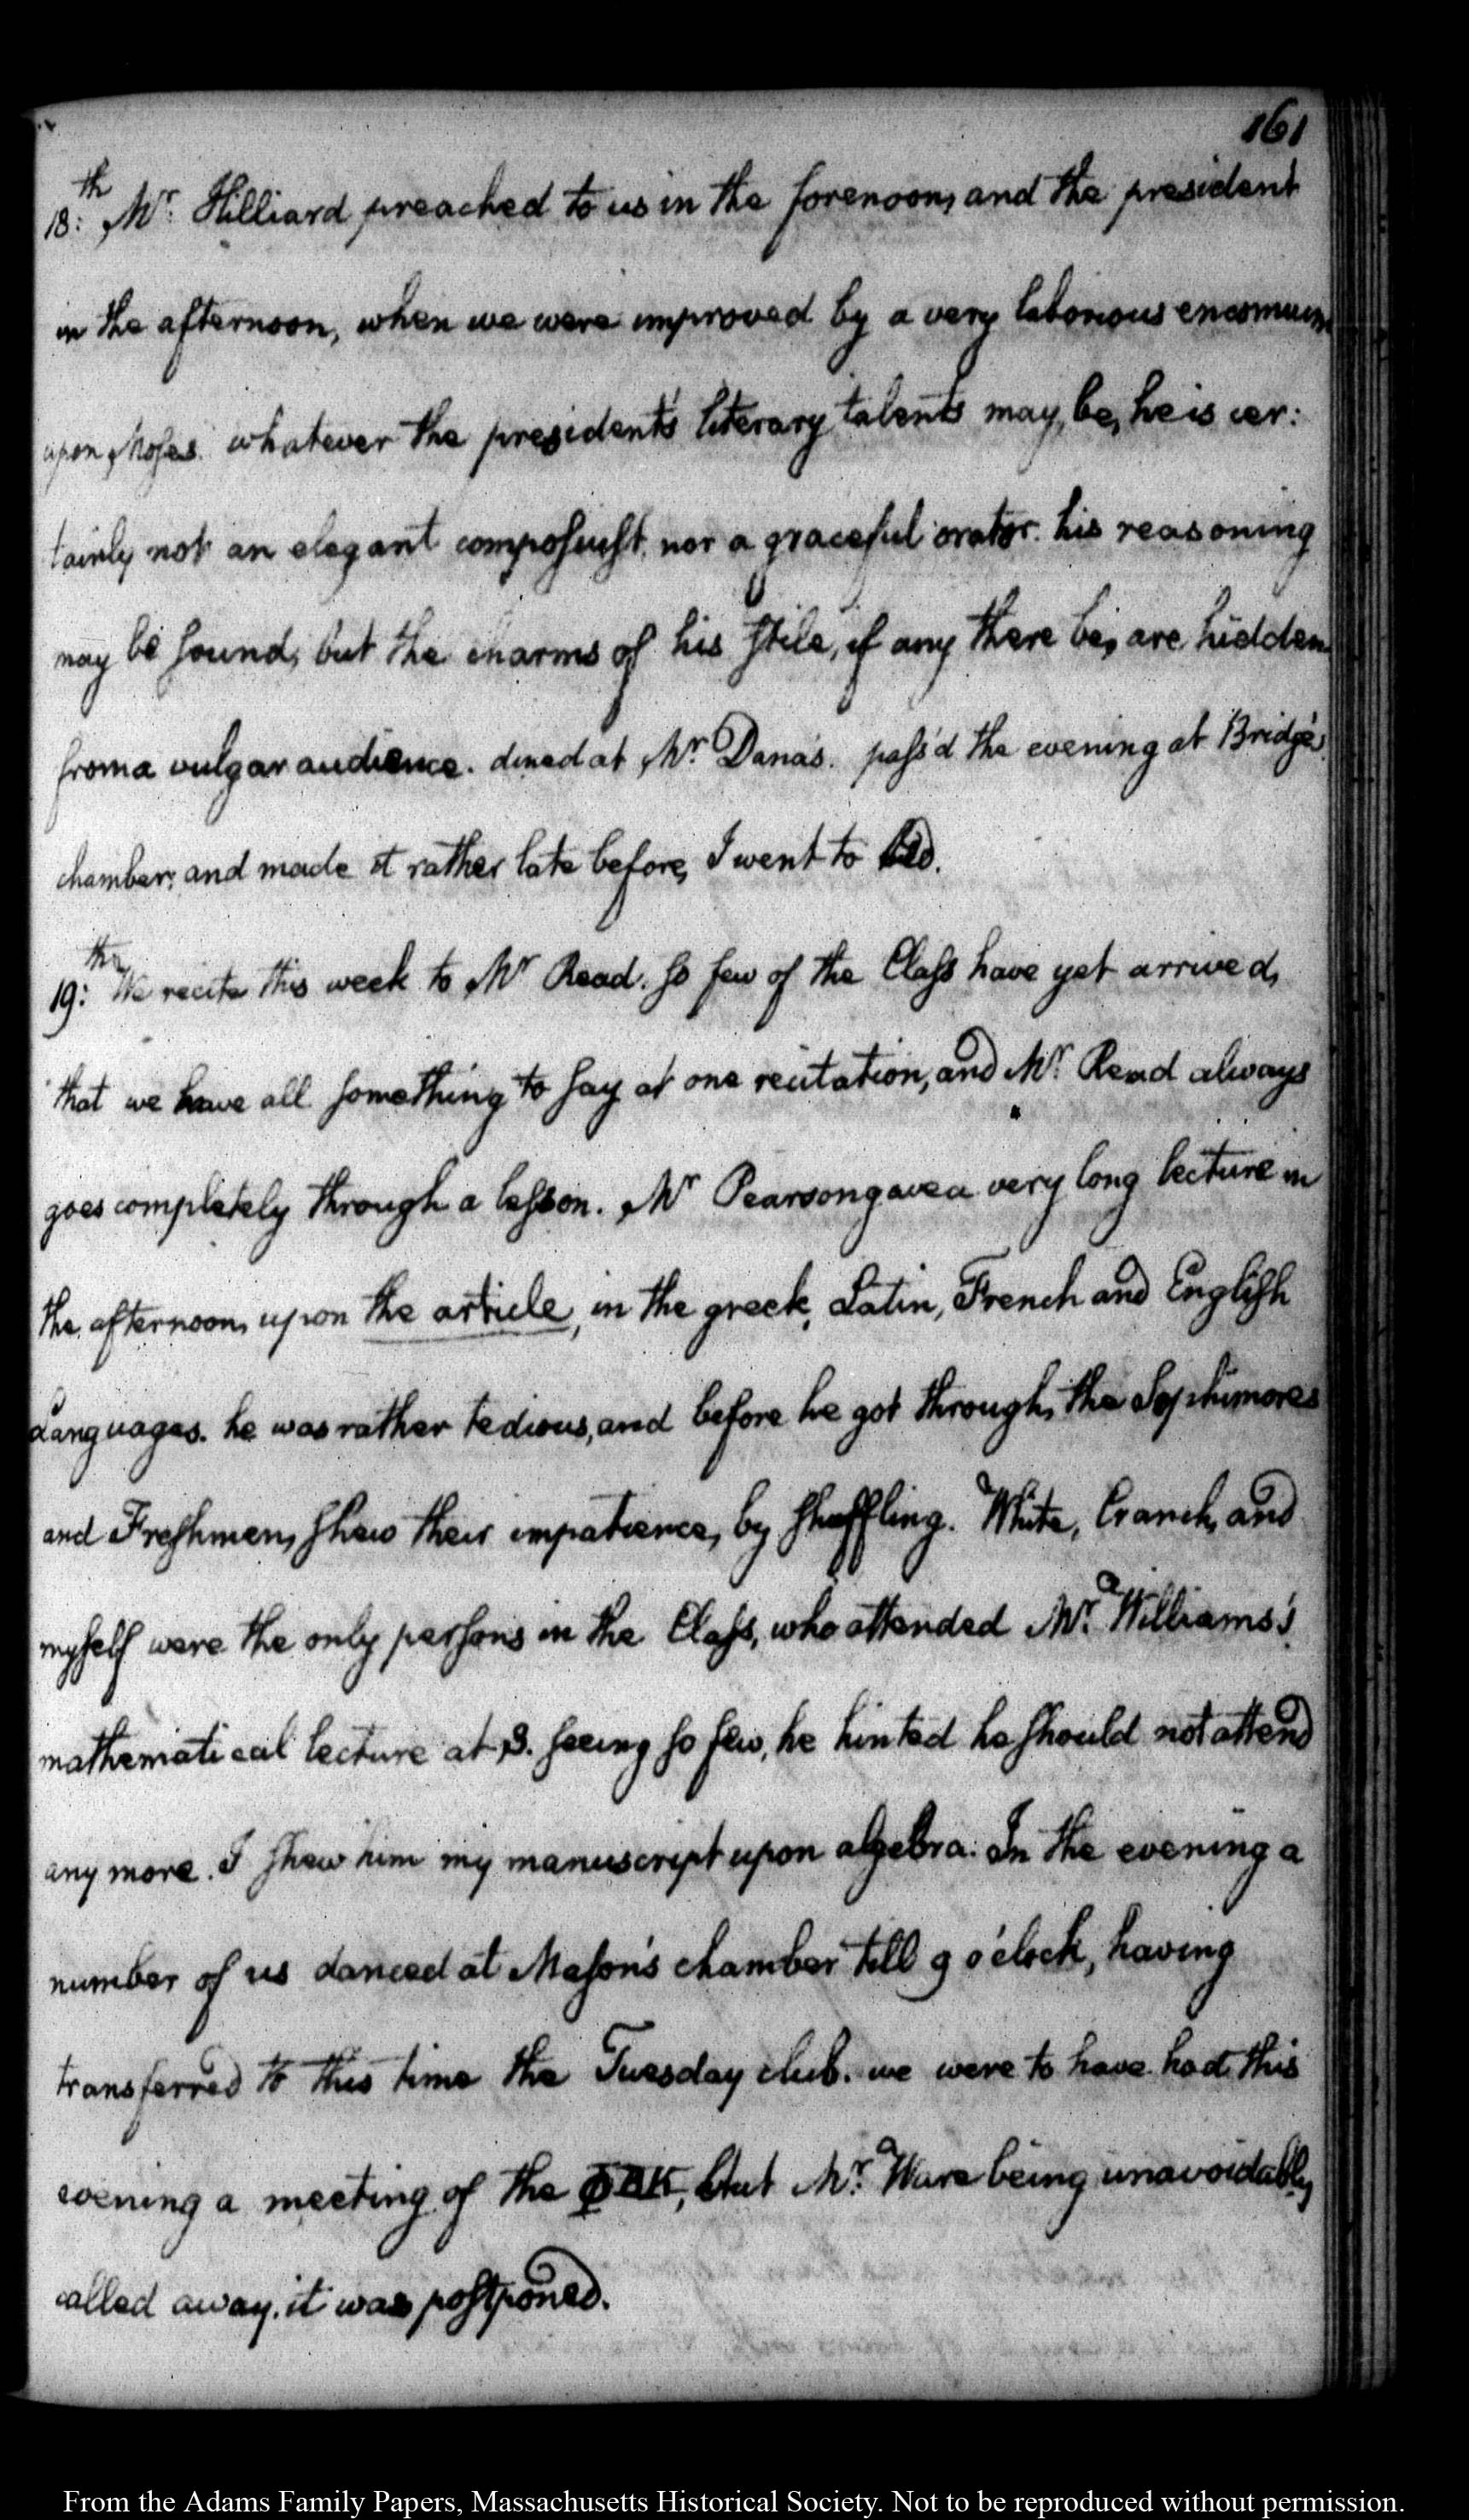 161
18:th Mr: Hilliard preached to us in the forenoon, and the president
in the afternoon, when we were improved by a very laborious encomium
upon Moses. whatever the president's literary talents may be, he is cer:
tainly not an elegant composuist, nor a graceful orator. his reasoning
may be sound, but the charms of his stile, if any there be, are hidden
from a vulgar audience. dined at Mr. Dana's. pass'd the evening at Bridge's
chamber; and made it rather late before, I went to bed.
19:th We recite this week to Mr Read. so few of the Class have yet arrived,
that we have all something to say at one recitation, and Mr. Read always
goes completely through a lesson. Mr Pearson gave a very long lecture in
the afternoon, upon the article, in the greek, Latin, French and English
Languages. he was rather tedious, and before he got through, the Sophimores
and Freshmen, shew their impatience, by shuffling. White, Cranch, and
myself were the only persons in the Class, who attended Mr. Williams's
mathematical lecture at 3. seeing so few, he hinted he should not attend
any more. I shew him my manuscript upon algebra. In the evening a
number of us danced at Mason's chamber till 9 o'clock, having
transferred to this time the Tuesday club. we were to have had this
evening a meeting of the ΦBK, but Mr. Ware being unavoidably
called away, it was postponed.
From the Adams Family Papers, Massachusetts Historical Society. Not to be reproduced without permission.